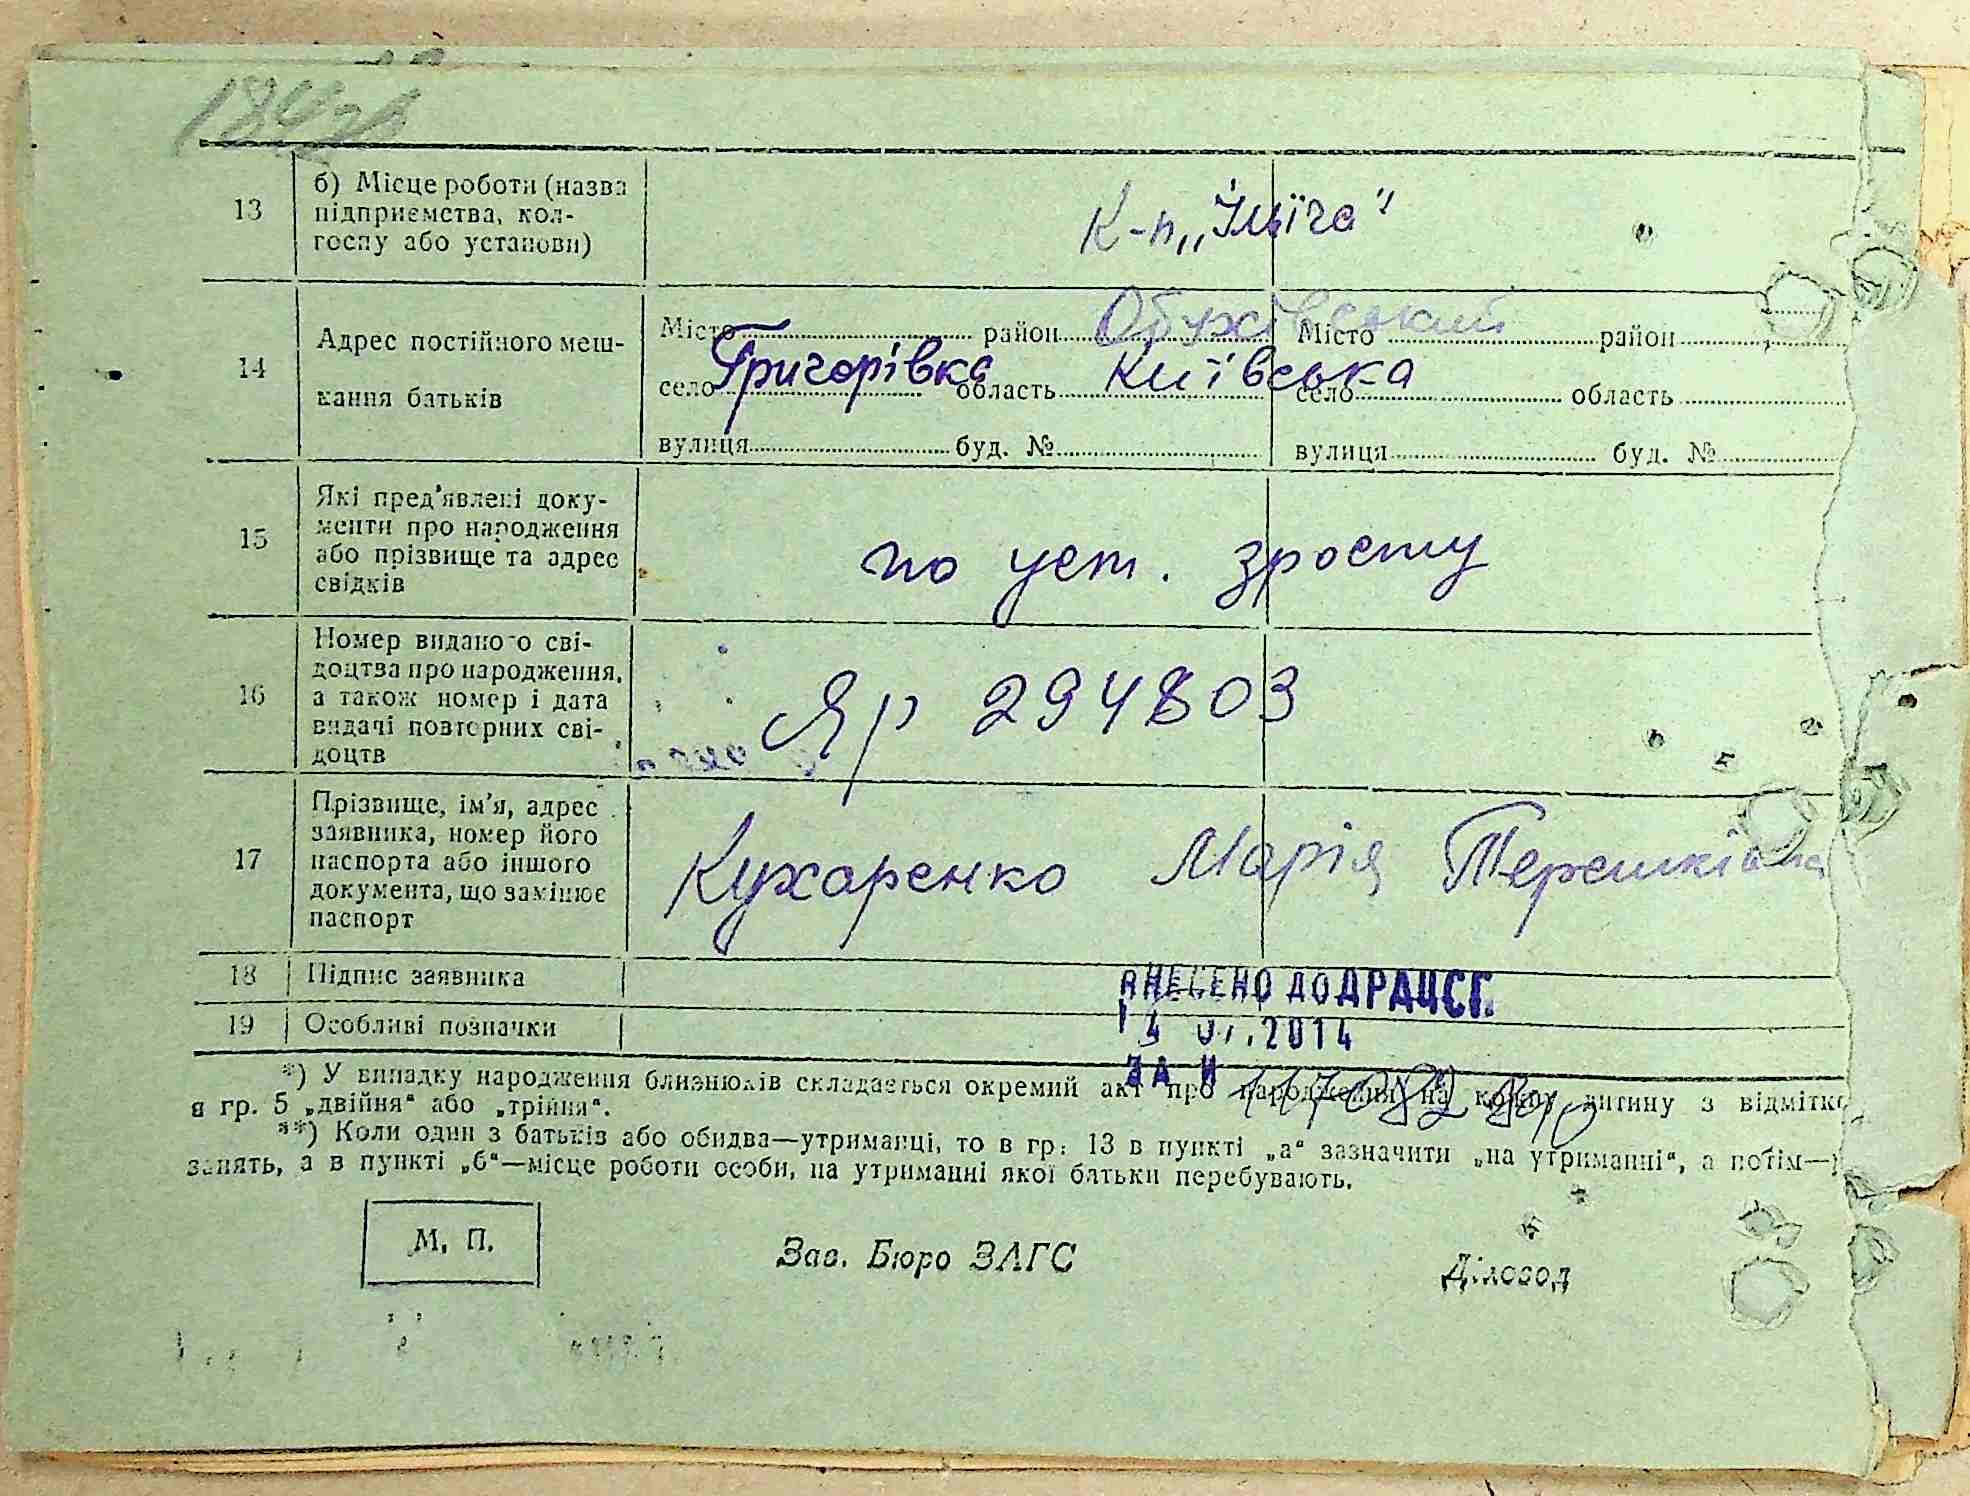 13
б) Місце роботи (назва
підприємства, кол-
госпу або установи)
К-п „Ілліча"
14
Адрес постійного меш-
кання батьків
Місто район Обухівський Місто район
село Григорівка область Київська село область
вулиця буд. № вулиця буд. №
15
Які пред'явлені доку-
менти про народження
або прізвище та адрес
свідків
по уст. зросту
16
Номер виданого сві-
доцтва про народження,
а також номер і дата
видачі повторних сві-
доцтв
Яр 294803
17
Прізвище, ім'я, адрес
заявника, номер його
паспорта або іншого
документа, що замінює
паспорт
Кухаренко Марія
18 Підпис заявника
ВНЕСЕНО ДО ДРАЦСГ.
19 Особливі позначки
2014
*) У випадку народження близнюків складається окремий акт про народження на кожну дитину з відмітко
в гр. 5 „двійня“ або „трійня“.
**) Коли один з батьків або обидва—утриманці, то в гр. 13 в пункті „а“ зазначити „на утриманні“, а потім—
занять, а в пункті „б“—місце роботи особи, на утриманні якої батьки перебувають.
М. П.
Зав. Бюро ЗАГС
Діловод